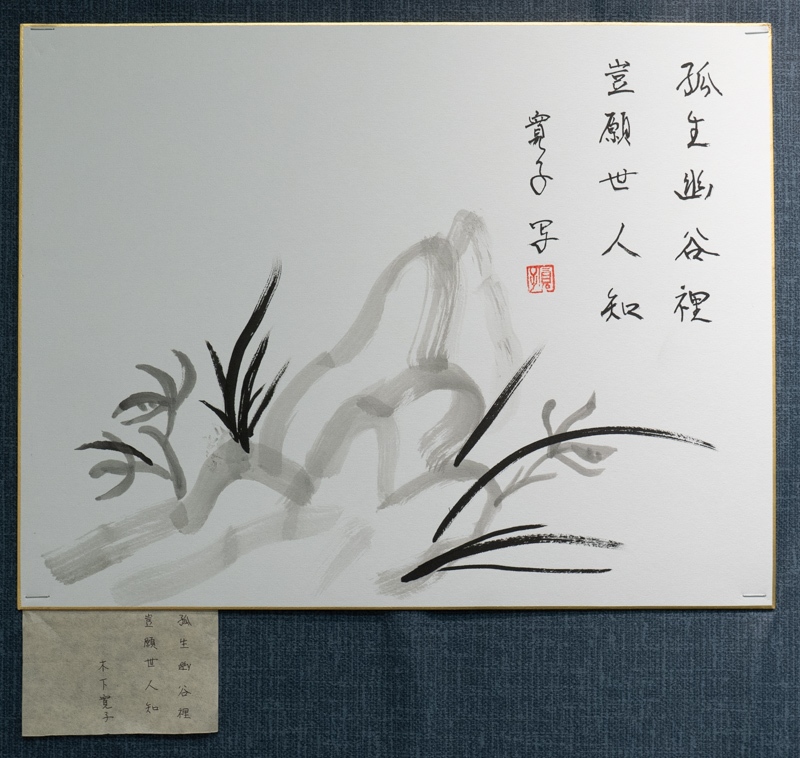 孤生幽谷裡
豈願世人知
寛子写
孤生幽谷裡
豈願世人知
木下寛子